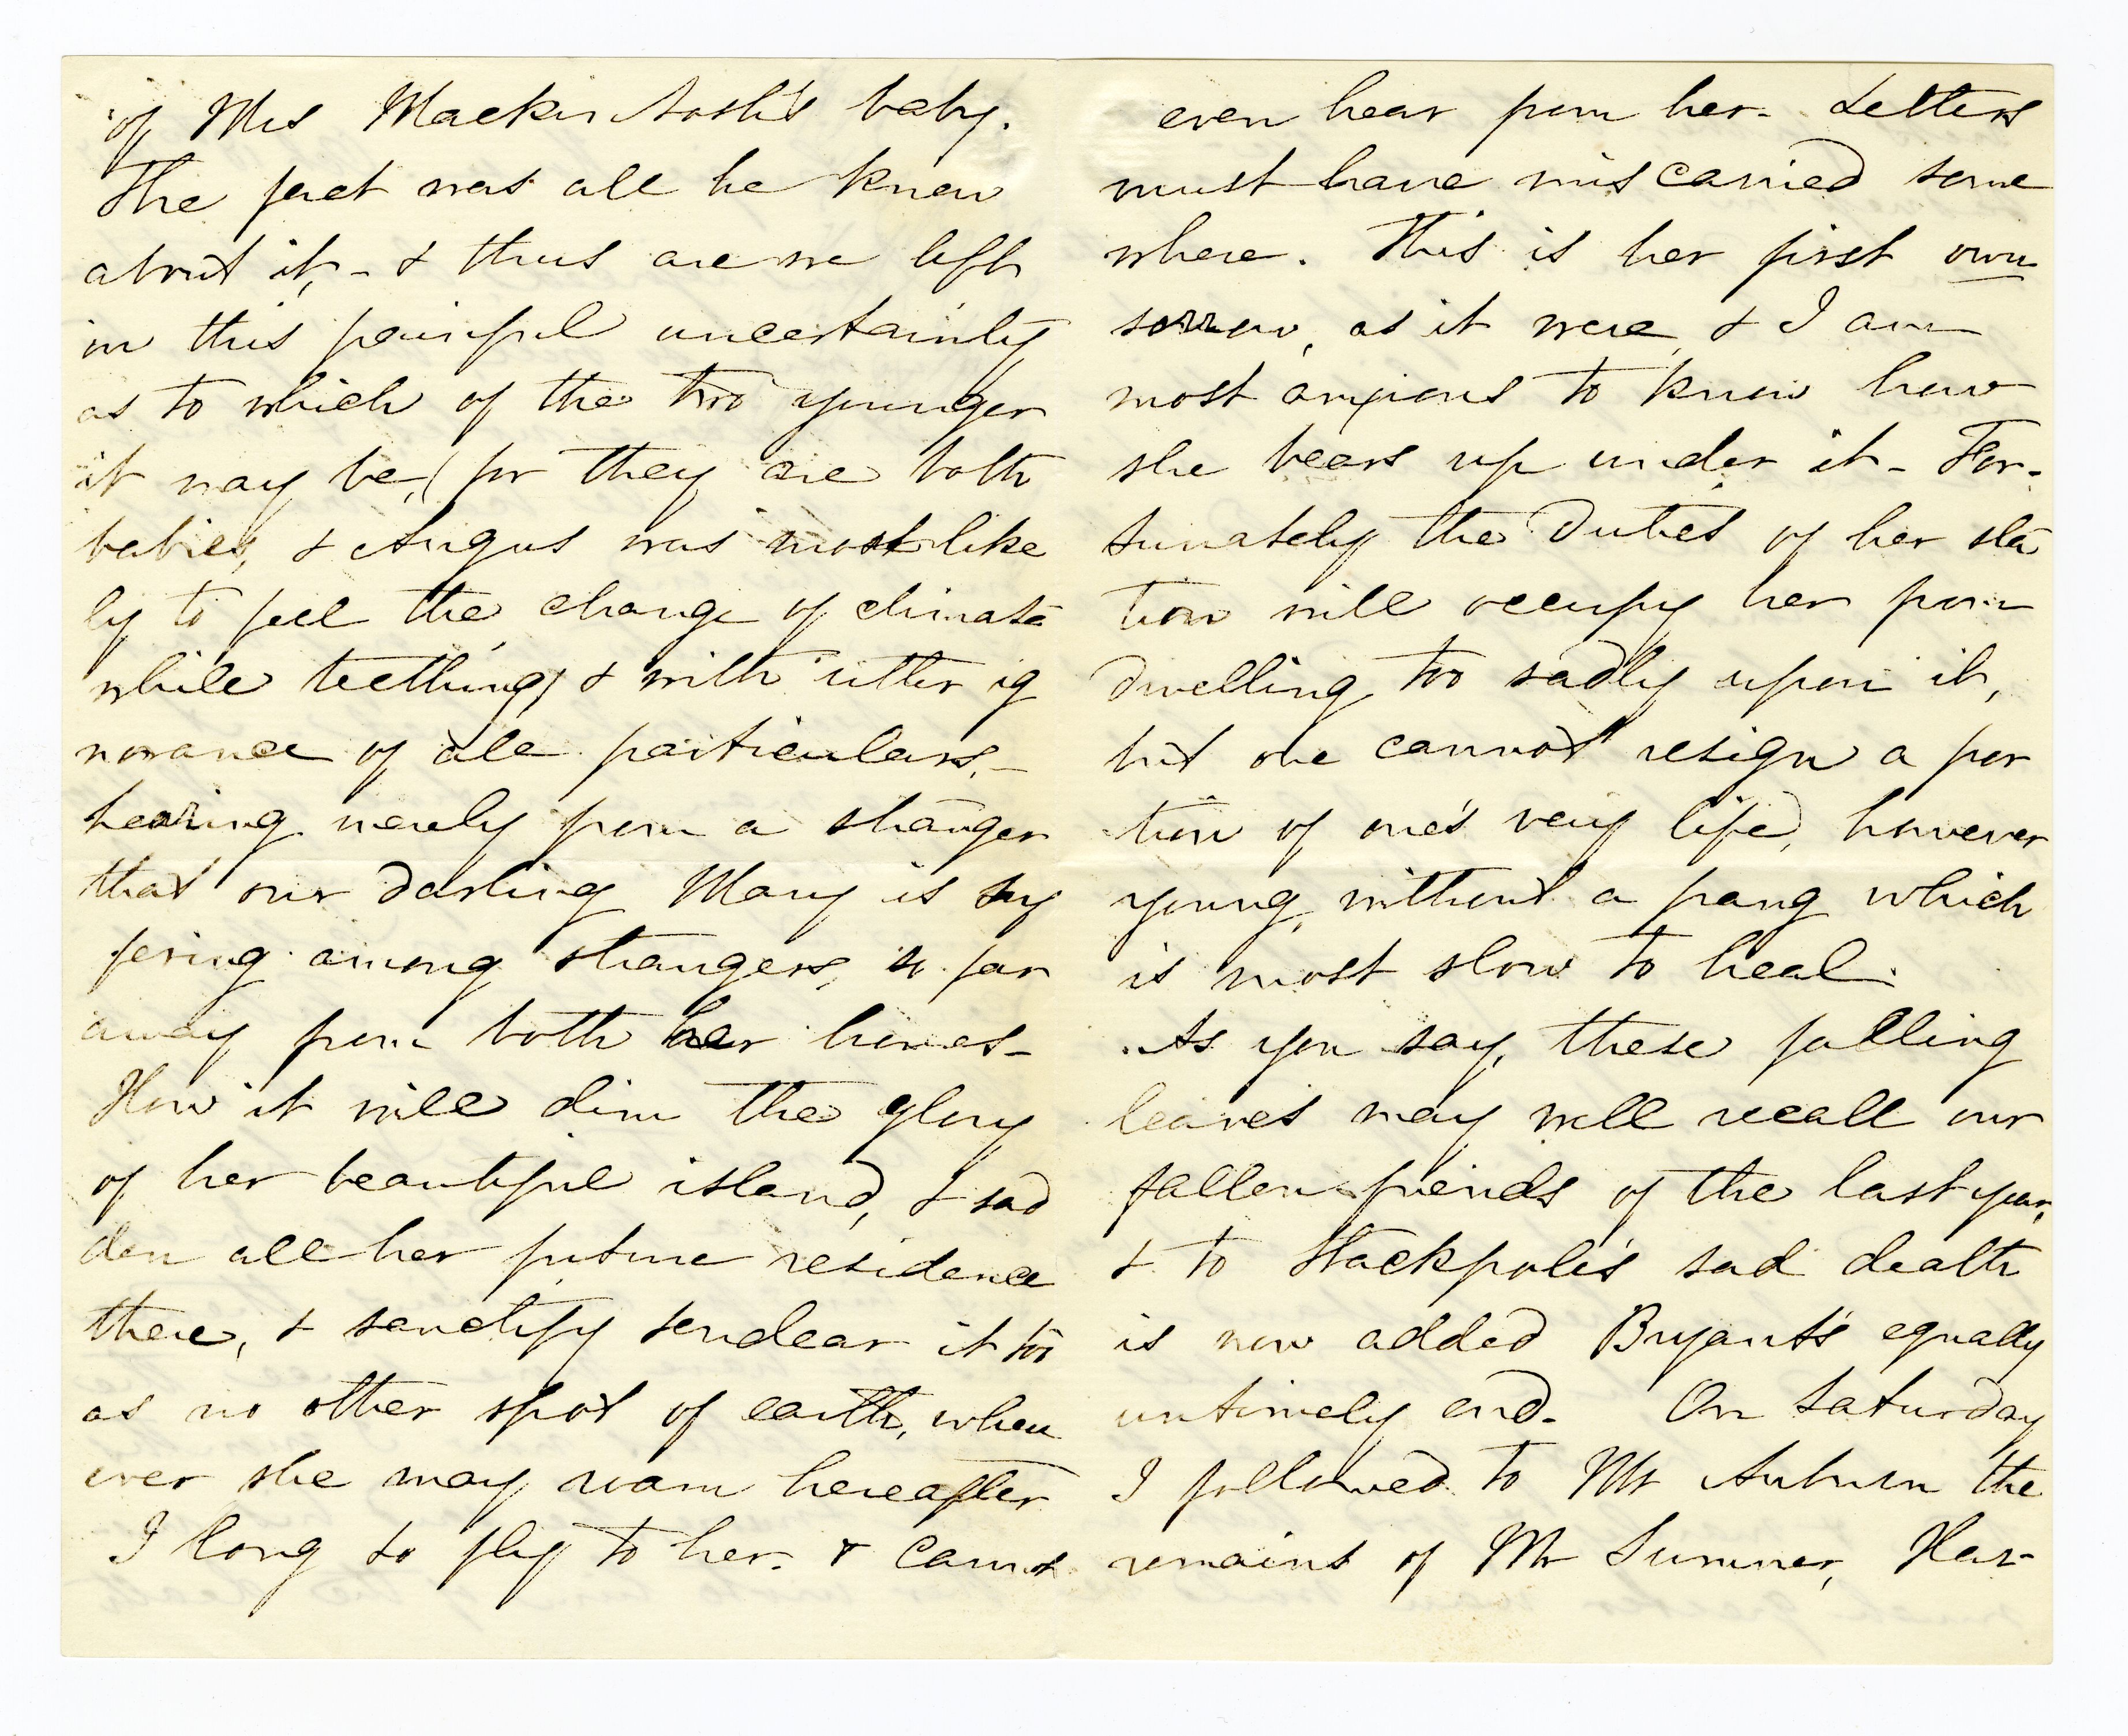 of Mrs Mackintosh's baby.
The fact was all he knew
about it, - & thus are we left
in this painful uncertainty
as to which of the two younger
it may be, (for they are both
babies, & Angus was most like
ly to feel the change of climate
while teething) & with utter ig
norance of all particulars, -
hearing merely from a stranger
that our darling Mary is suf
fering among strangers, so far
away from both her homes -
How it will dim the glory
of her beautiful island, & sad
den all her future residence
there, & sanctify & endear it too
as no other spot of earth, when
ever she may roam hereafter
I long to fly to her. & cannot
even hear from her - Letters
must have miscarried some
where. This is her first own
sorrow, as it were, & I am
most anxious to know how
she bears up under it - For-
tunately the duties of her sta
tion will occupy her from
dwelling too sadly upon it,
but one cannot resign a por
tion of one's very life, however
young, without a pang which
is most slow to heal.
As you say, these falling
leaves may well recall our
fallen friends of the last year,
& to Stackpole's sad death
is now added Bryant's equally
untimely end. On Saturday
I followed to Mt Auburn the
remains of Mr Sumner, Har-